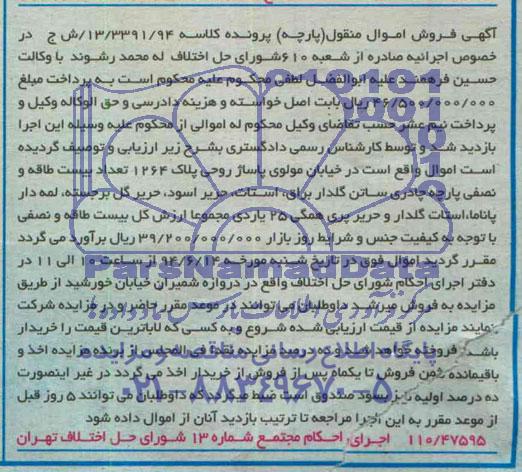 آگهی فروش اموال منقول(پارچه) پرونده کلاسه ۱۳/۳۳۹۱/۹۴/ش ج در
خصوص اجرائیه صادره از شعبه ۶۱۰شورای حل اختلاف له محمد رشوند با وکالت
حسین فرهمند علیه ابوالفضل لطفی محکوم علیه محکوم است به پرداخت مبلغ
۴۶/۵۰۰/۰۰۰/۰۰۰ ریال بابت اصل خواسته و هزینه دادرسی و حق الوکاله وکیل و
پرداخت نیم عشر حسب تقاضای وکیل محکوم له اموالی از محکوم علیه وسیله این اجرا
بازدید شد و توسط کارشناس رسمی دادگستری بشرح زیر ارزیابی و توصیف گردیده
است اموال واقع است در خیابان مولوی پاساژ روحی پلاک ۱۲۶۴ تعداد بیست طاقه و
نصفی پارچه چادری ساتن گلدار براق، استات، حریر اسود، حریر گل برجسته، لمه دار
پاناما،استات گلدار و حریر پری همگی ۲۵ یاردی مجموعا ارزش کل بیست طاقه و نصفی
با توجه به کیفیت جنس و شرایط روز بازار ۳۹/۲۰۰/۰۰۰/۰۰۰ ریال برآورد می گردد
مقرر گردید اموال فوق در تاریخ شنبه مورخه ۹۴/۶/۱۴ از ساعت ۱۰ الی ۱۱ در
دفتر اجرای احکام شورای حل اختلاف واقع در دروازه شمیران خیابان خورشید از طریق
مزایده به فروش میرسد داوطلبان می توانند در موعد مقرر حاضر و در مزایده شرکت
نمایند مزایده از قیمت ارزیابی شده شروع و به کسی که بالاترین قیمت را خریدار
باشد فروخته خواهد شد و ده درصد مزایده نقدا فی المجلس از برنده مزایده اخذ و
باقیمانده ثمن فروش تا یکماه پس از فروش از خریدار اخذ می گردد در غیر اینصورت
ده درصد اولیه بنفع صندوق است ضبط میگردد که داوطلبان می توانند ۵ روز قبل
از موعد مقرر به این اجرا مراجعه تا ترتیب بازدید آنان از اموال داده شود
۱۱۰/۴۷۵۹۵ اجرای احکام مجتمع شماره ۱۳ شورای حل اختلاف تهران
ParsNamadData
پایگاه اطلاع رسانی مناقصه و مزایده
۰۲۱-۸۸۳۴۹۶۷۰-۵